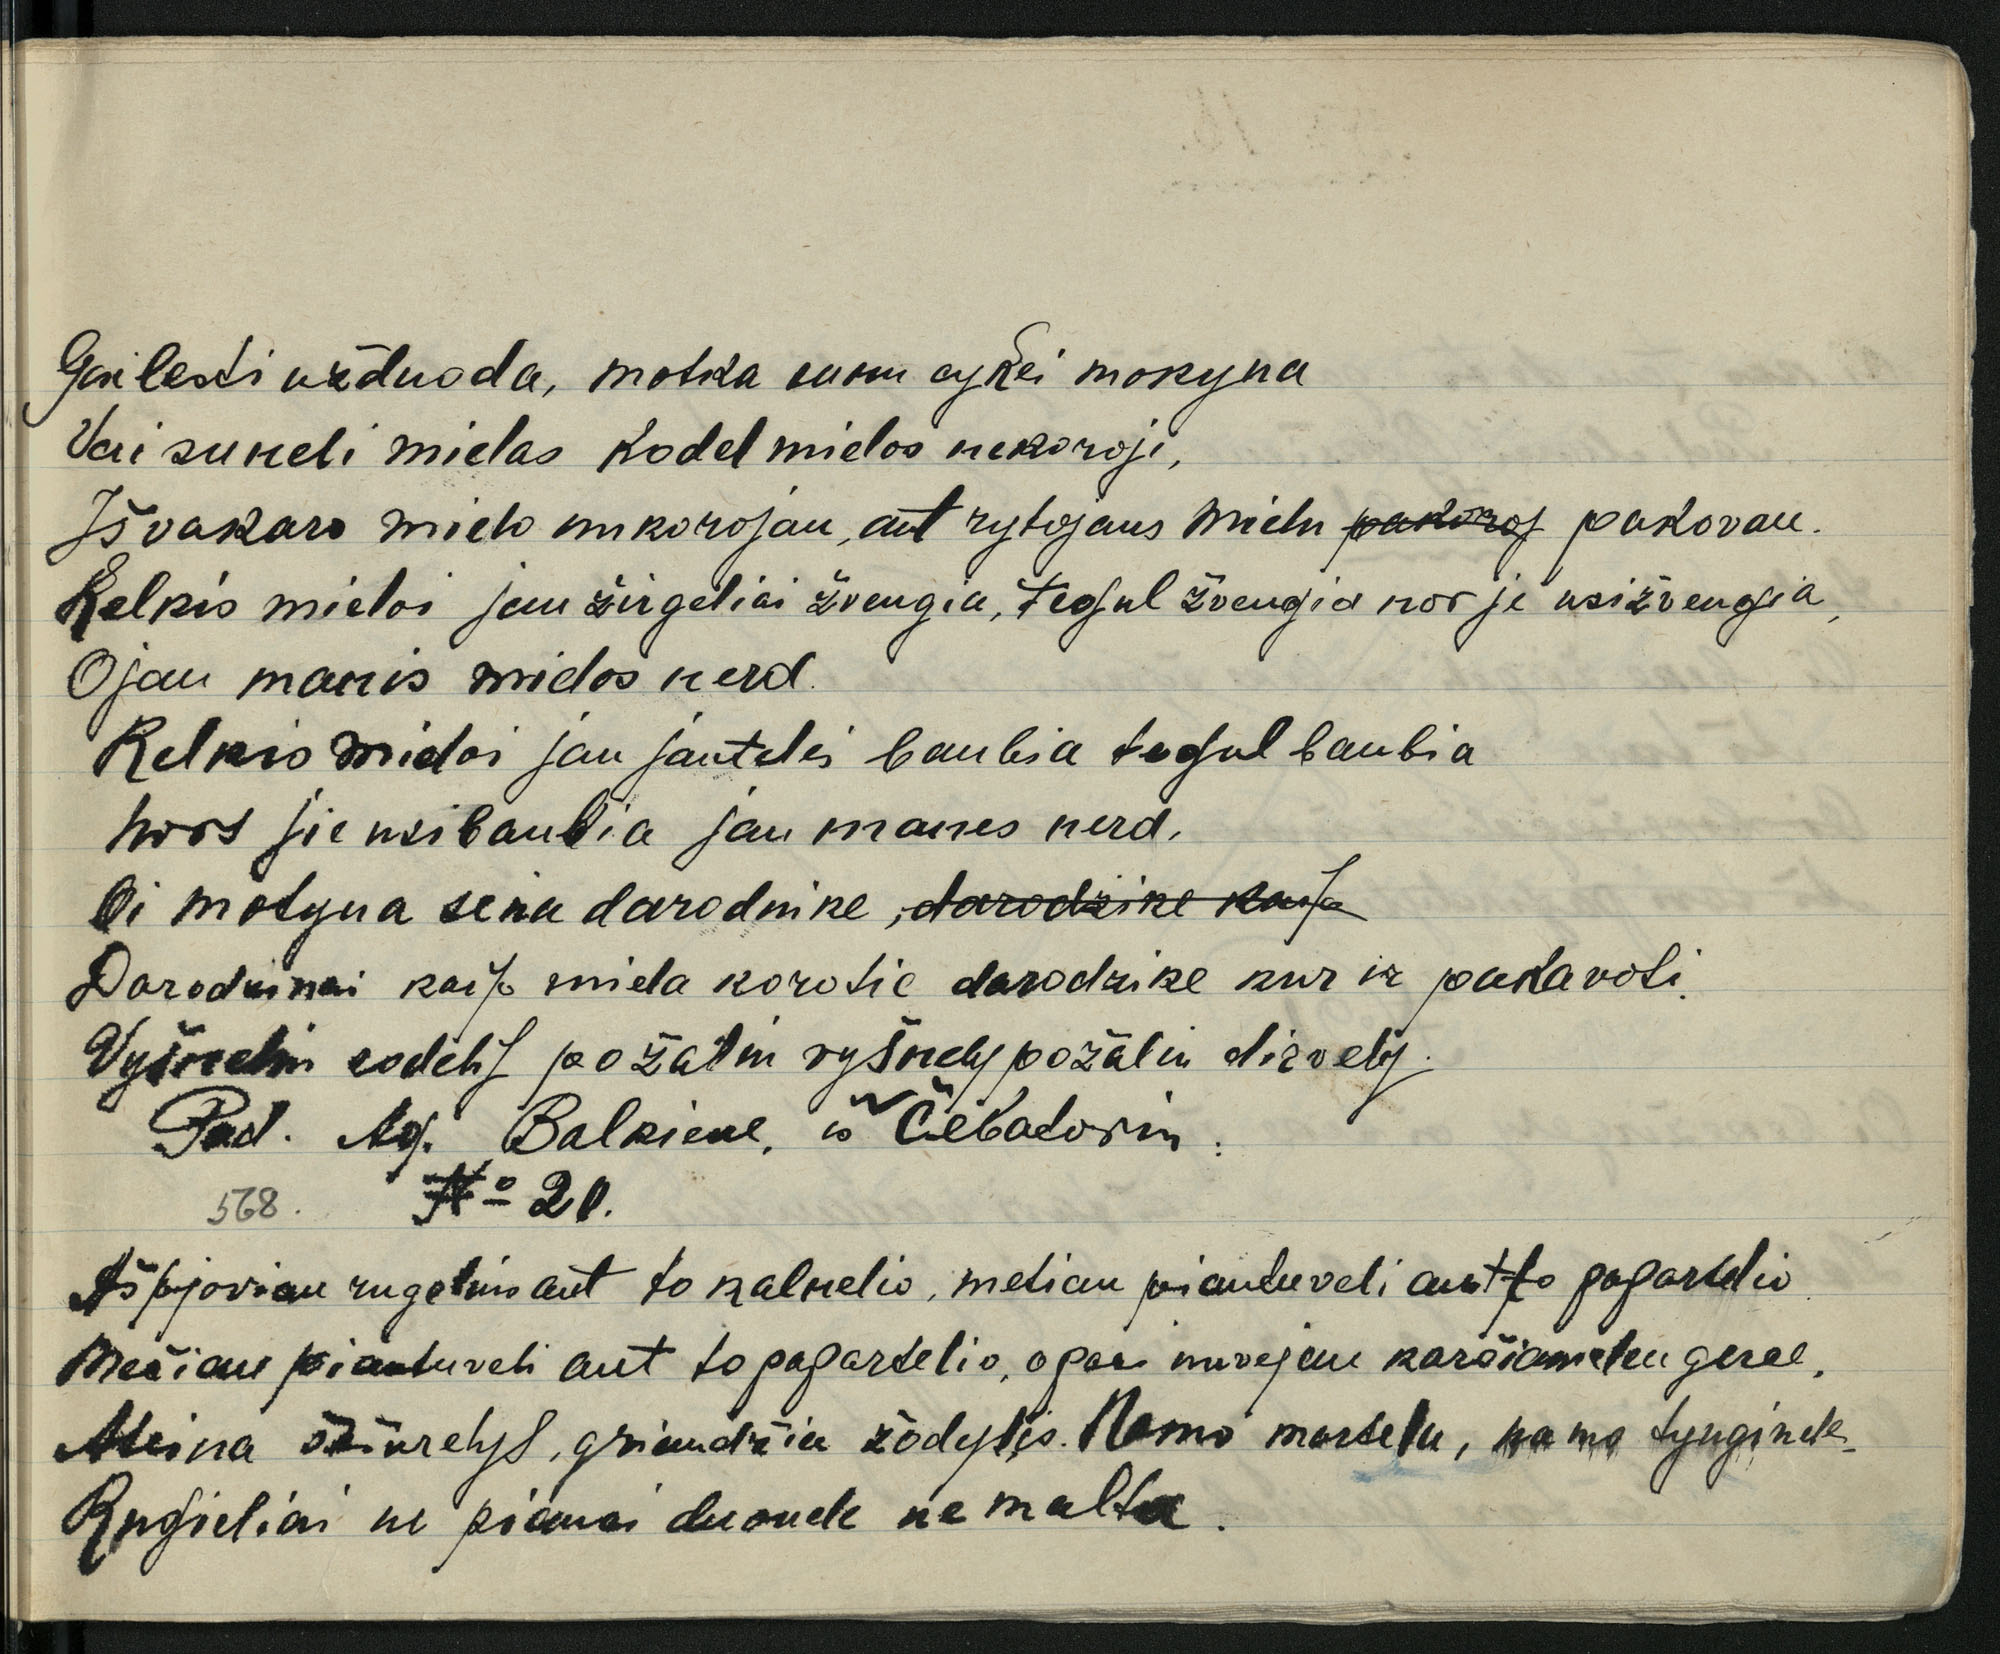 Gailesti užduoda, motka sunu aykei mokyna
Vai suneli mielas kodel mielos nekoroji,
Iš vakaro mielo nukorojau, ant rytojaus mielu ~~pakoroj~~ pakovau.
Kelkis mieloi jau žirgeliai žvengia, tegul žvengia nor je usižvengia,
O jau manis mielos nerd.
Kelkis mieloi jau jautelei baubia tegul baubia
hors jie usibaubia jau manes nerd.
Oi motyna sena darodnike, ~~darodzike kaip~~
Darodzinai kaip miela korotie darodzike kur ir pakavoti.
Vyšnelin sodelij požalin vyšnely požalin dirvelij.
Pad. Ag. Balkiene, iš Čebatorin.
568. № 20.
Aš pjoviau rugelius ant to kalnelio, metiau piautuveli ant to pagartelio
Mečiau piautuveli ant to pagartelio, o pati nuvejau karčiamelen gerte.
Ateina šžiurelys, griaudžia žodylis. Namo martelu, namo tynginele
Rugieliai ne piauai duonele ne malta.